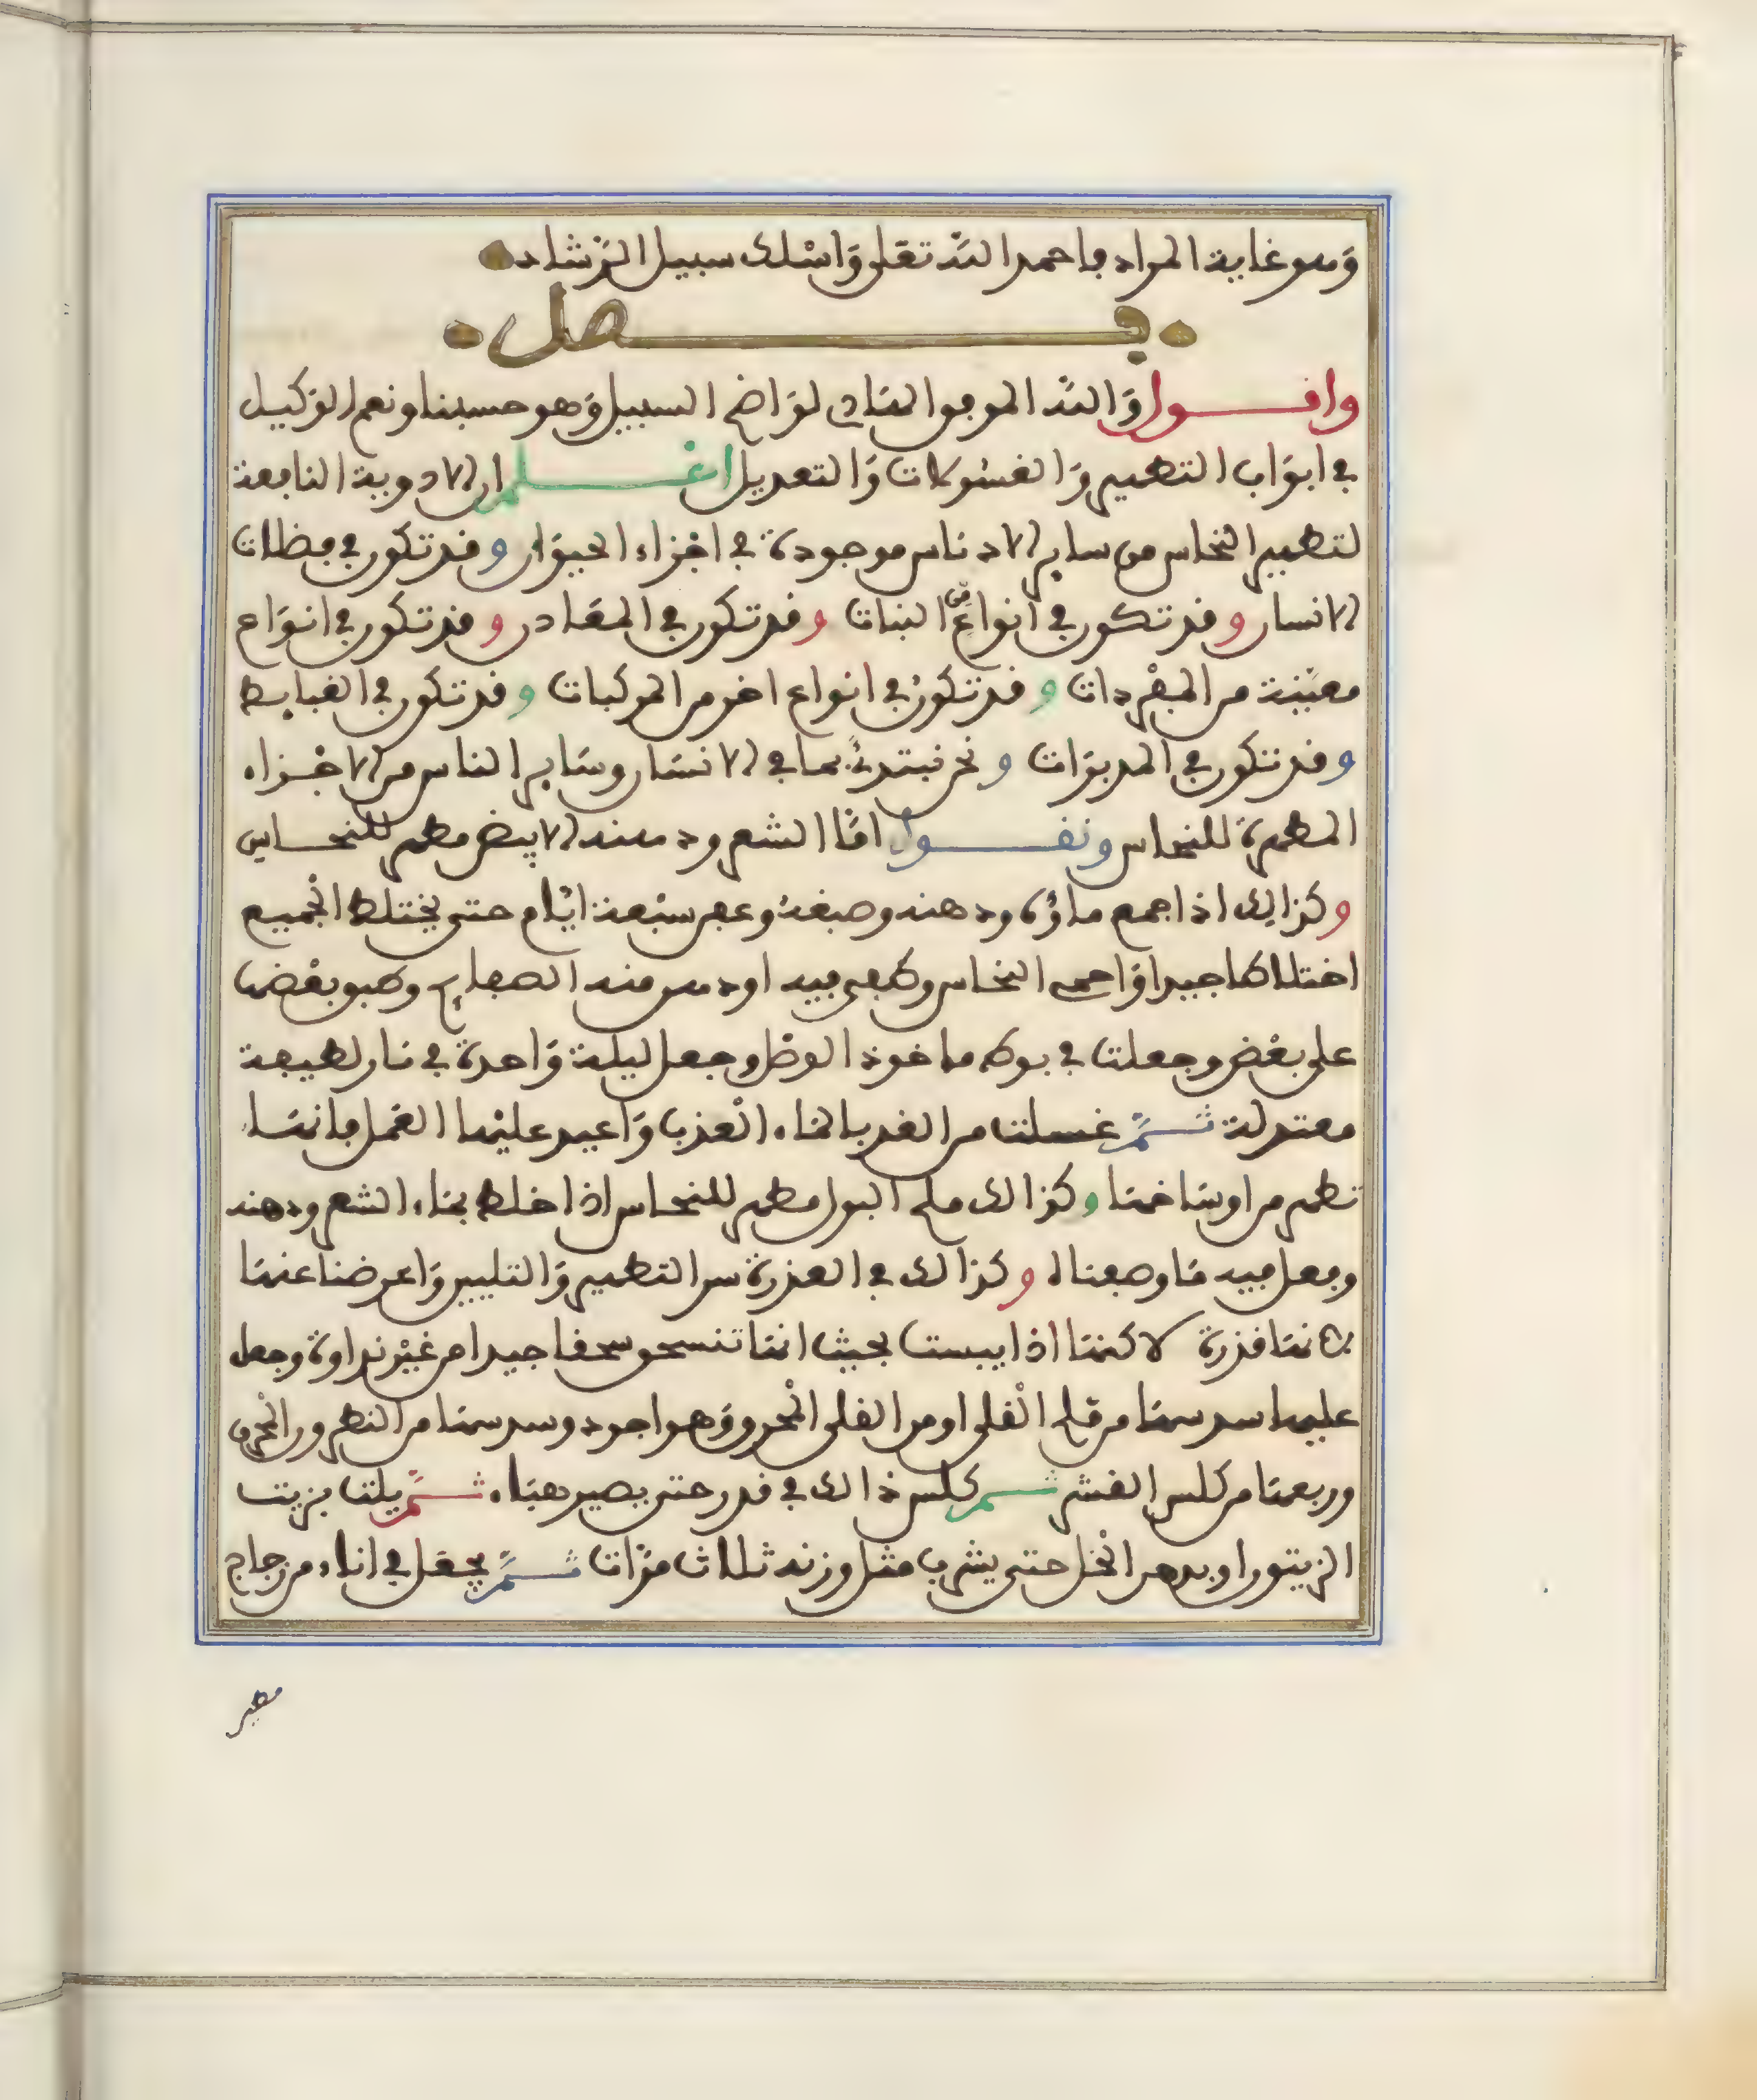 وهو غاية المراد فاحمد الله تعلى وَاسْلك سبيل الرّشاد
فصل
وافول وَالله الموفق الهادى لوَاضح السبيل وَهو حسبنا ونعم الوَكيل
في ابوَاب التطهير وَالغسُولات وَالتعديل اعلم ان الادوية النافعة
لتطهير النحاس من ساير الادناس موجودة في اجْزاء الحيوَان وقد تكون في فضلات
الانسان وقد تكون في انواعٍ من النبات وقد تكون في المعَادن وقد تكون في انوَاع
معيّنة من المفْردات وقد تكونُ في انواع اخر من المركبات وقد تكون في الغبايط
وقد تكون في المدبرَات ونحن نبتدئُ بما في الانسَان وسَاير الناس من الاجْزاء
المطهرة للنحاس ونقول امّا الشعر ودهنه الابيض مطهر للنحاس
وكذالك اذا جمع ماؤه ودهنه وصبغه وعفن سبْعة ايّام حتى يختلط الجْميع
اختلاطا جيدا وَاحمى النحاس وطفى فيه اودهن منه الصفايح وطبق بعْضها
على بعْض وجعلت في بوطه ماخوذ الوصْل وجعل ليلة وَاحدة في نار لطيفة
معتدلة ثمّ غسلت من الغد بالماء الْعذب وَاعيد عليْها العَمل فانها
تطهر من اوسَاخها وكذالك ملح البول مطهر للنحاس اذا خلط بماء الشعر ودهنه
وفعل فيه مَا وصفناه وكذالك في العذرة سر التطهير وَالتليين وَاعرضنا عنها
لانها قذرة لاكنها اذا يبست بحيث انها تنسحق سحقا جيدا من غيْر نداوة وجعل
عليها سدسها من ملح الْقلى او من القلى المْحرق وَهو اجود وسدسها من النطرون المْحرق
وربعها من كلس القشر ثم كلس ذالك في قدر حتى يصير هبَاء ثمّ يلت بزيت
الزيتون او بدهن النْخل حتى يشرب مثل وزنه ثلاث مرّات ثمّ يجعَل في اناء من زجاج
مطين